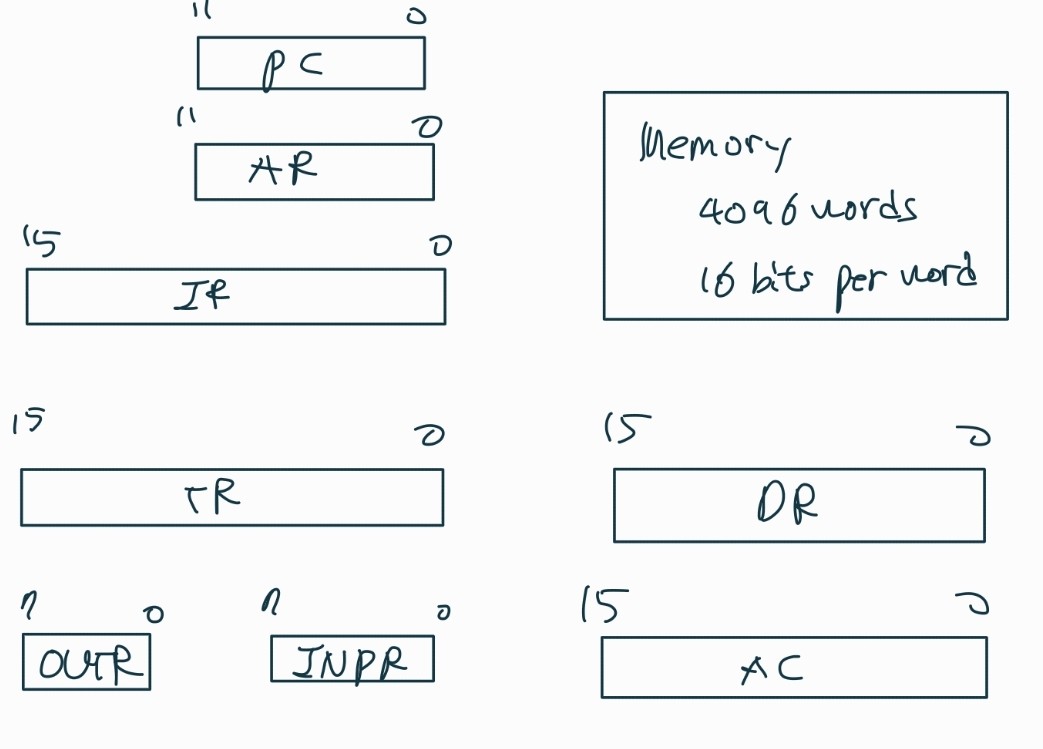 11 0
PC
11 0
AR
15 0
IR
Memory
4096 words
16 bits per word
15 0
TR
15 0
DR
7 0
OUTR
7 0
INPR
15 0
AC